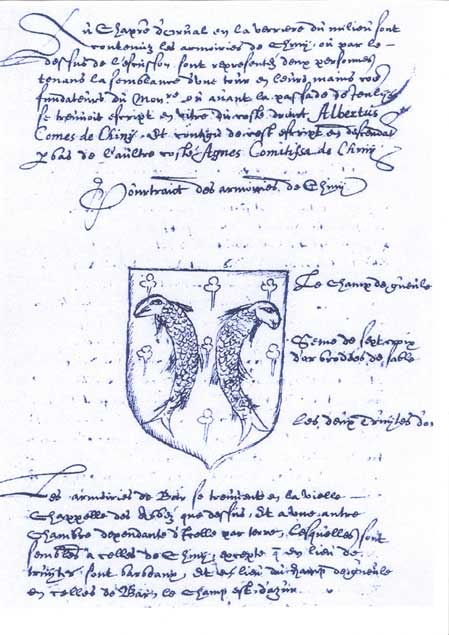 Au Chapre d'Orval en la verriere du milieu sont
contenuz les armoiries de Chiny, où par le
dessus de l'escusson sont representez deux personnes
tenans la semblance d'une tour en leurs mains
fundateurs du Mon.re où avant la passade de
se treuvoit escript en vitre du costé droict Albertus
Comes de Chiny, et de cost escript en
bas de l'aultre costé Agnes Comitissa de Chiny
Pourtraict des armoiries de Chiny
Le champ de gueule
Semé de sept croix
d'or brodées de sable
Les deux Truytes d'or
Les armoiries de Bar se treuvent en la vielle
Chappelle des Abbz que dessus, et a une autre
Chambre dependante d'icelle par terre, lesquelles sont
semblables a celles de Chiny, excepte q en lieu de
truytes sont barbeaux, et en lieu du champ de gueule
en celles de Bar, le champ est d'azur